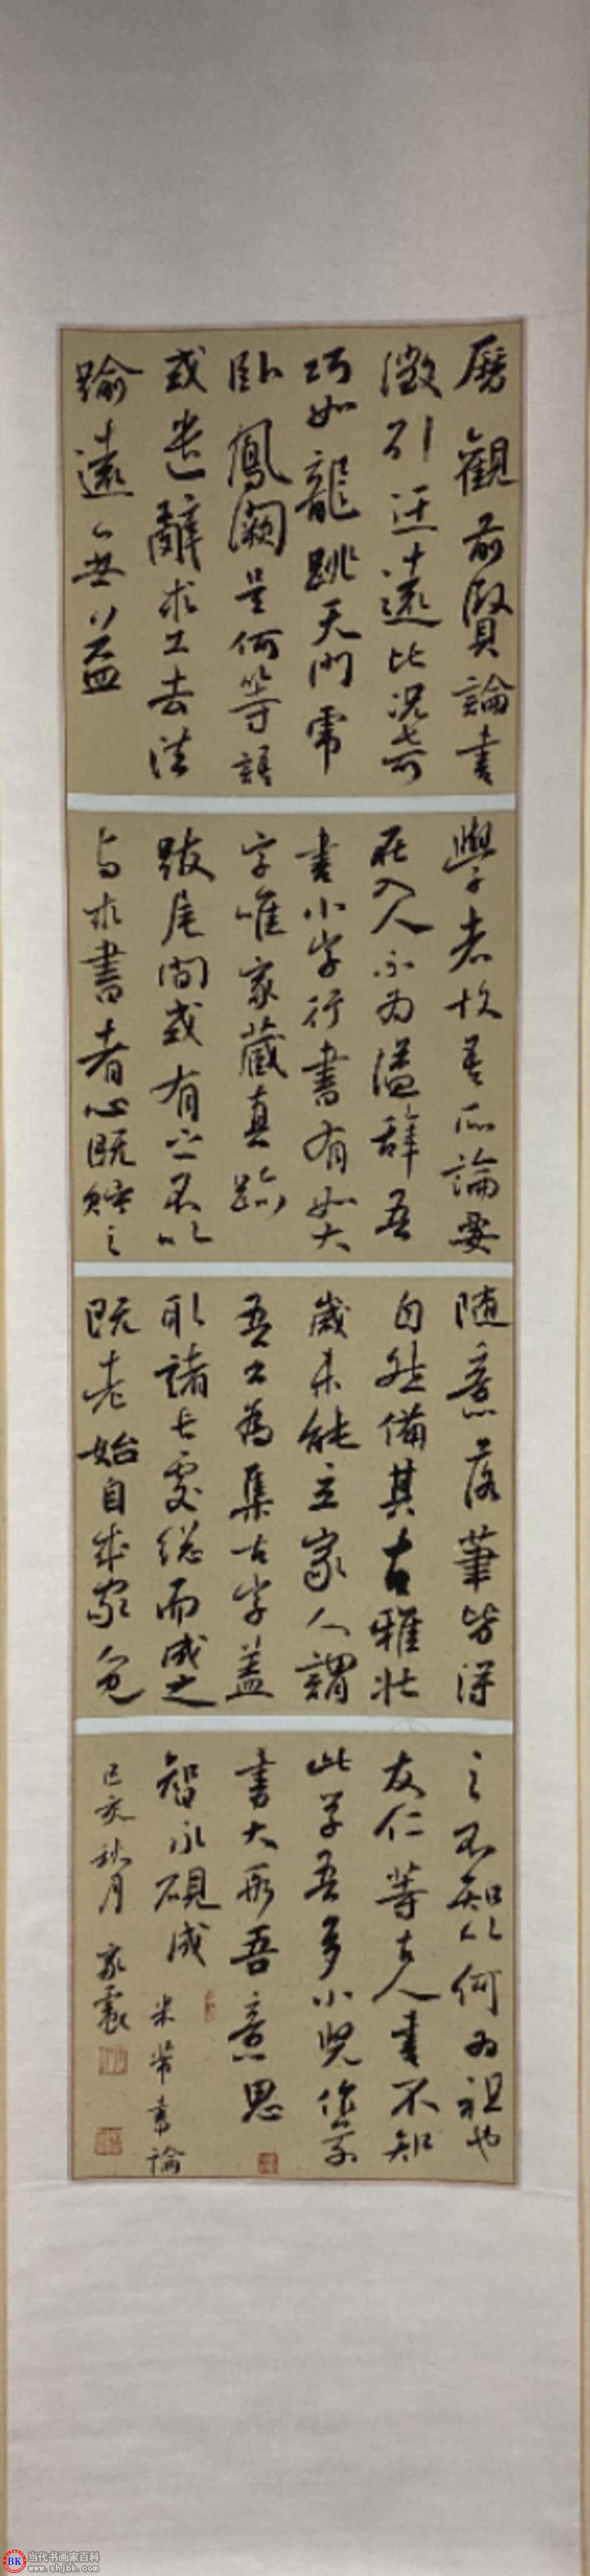 歷觀前賢論書
徵引迂遠比况奇
巧如龍跳天門虎
卧鳳闕是何等語
或遣辭求工去法
踰遠無益
學者故吾所論要
在入人不為溢辞吾
書小字行書有如大
字唯家藏真跡
跋尾間或有之不以
与求書者心既貯之
随意落筆皆得
自然備其古雅壮
歲未能立家人謂
吾書為集古字蓋
取諸長處總而成之
既老始自成家人見
之不知以何為祖也
友仁等古人書不知
此学吾多小兒作草
書大段吾意思
智永硯成
米芾書論
己亥秋月
当代书画家百科
www.shjbk.com
BK